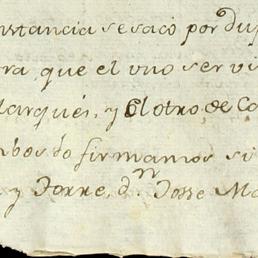 nstancia se sacó por dup
ra, que el vno ser vi
Marqués, y el otro, de Ca
mbos lo firmamos si
y Torre, d.n Josse Ma